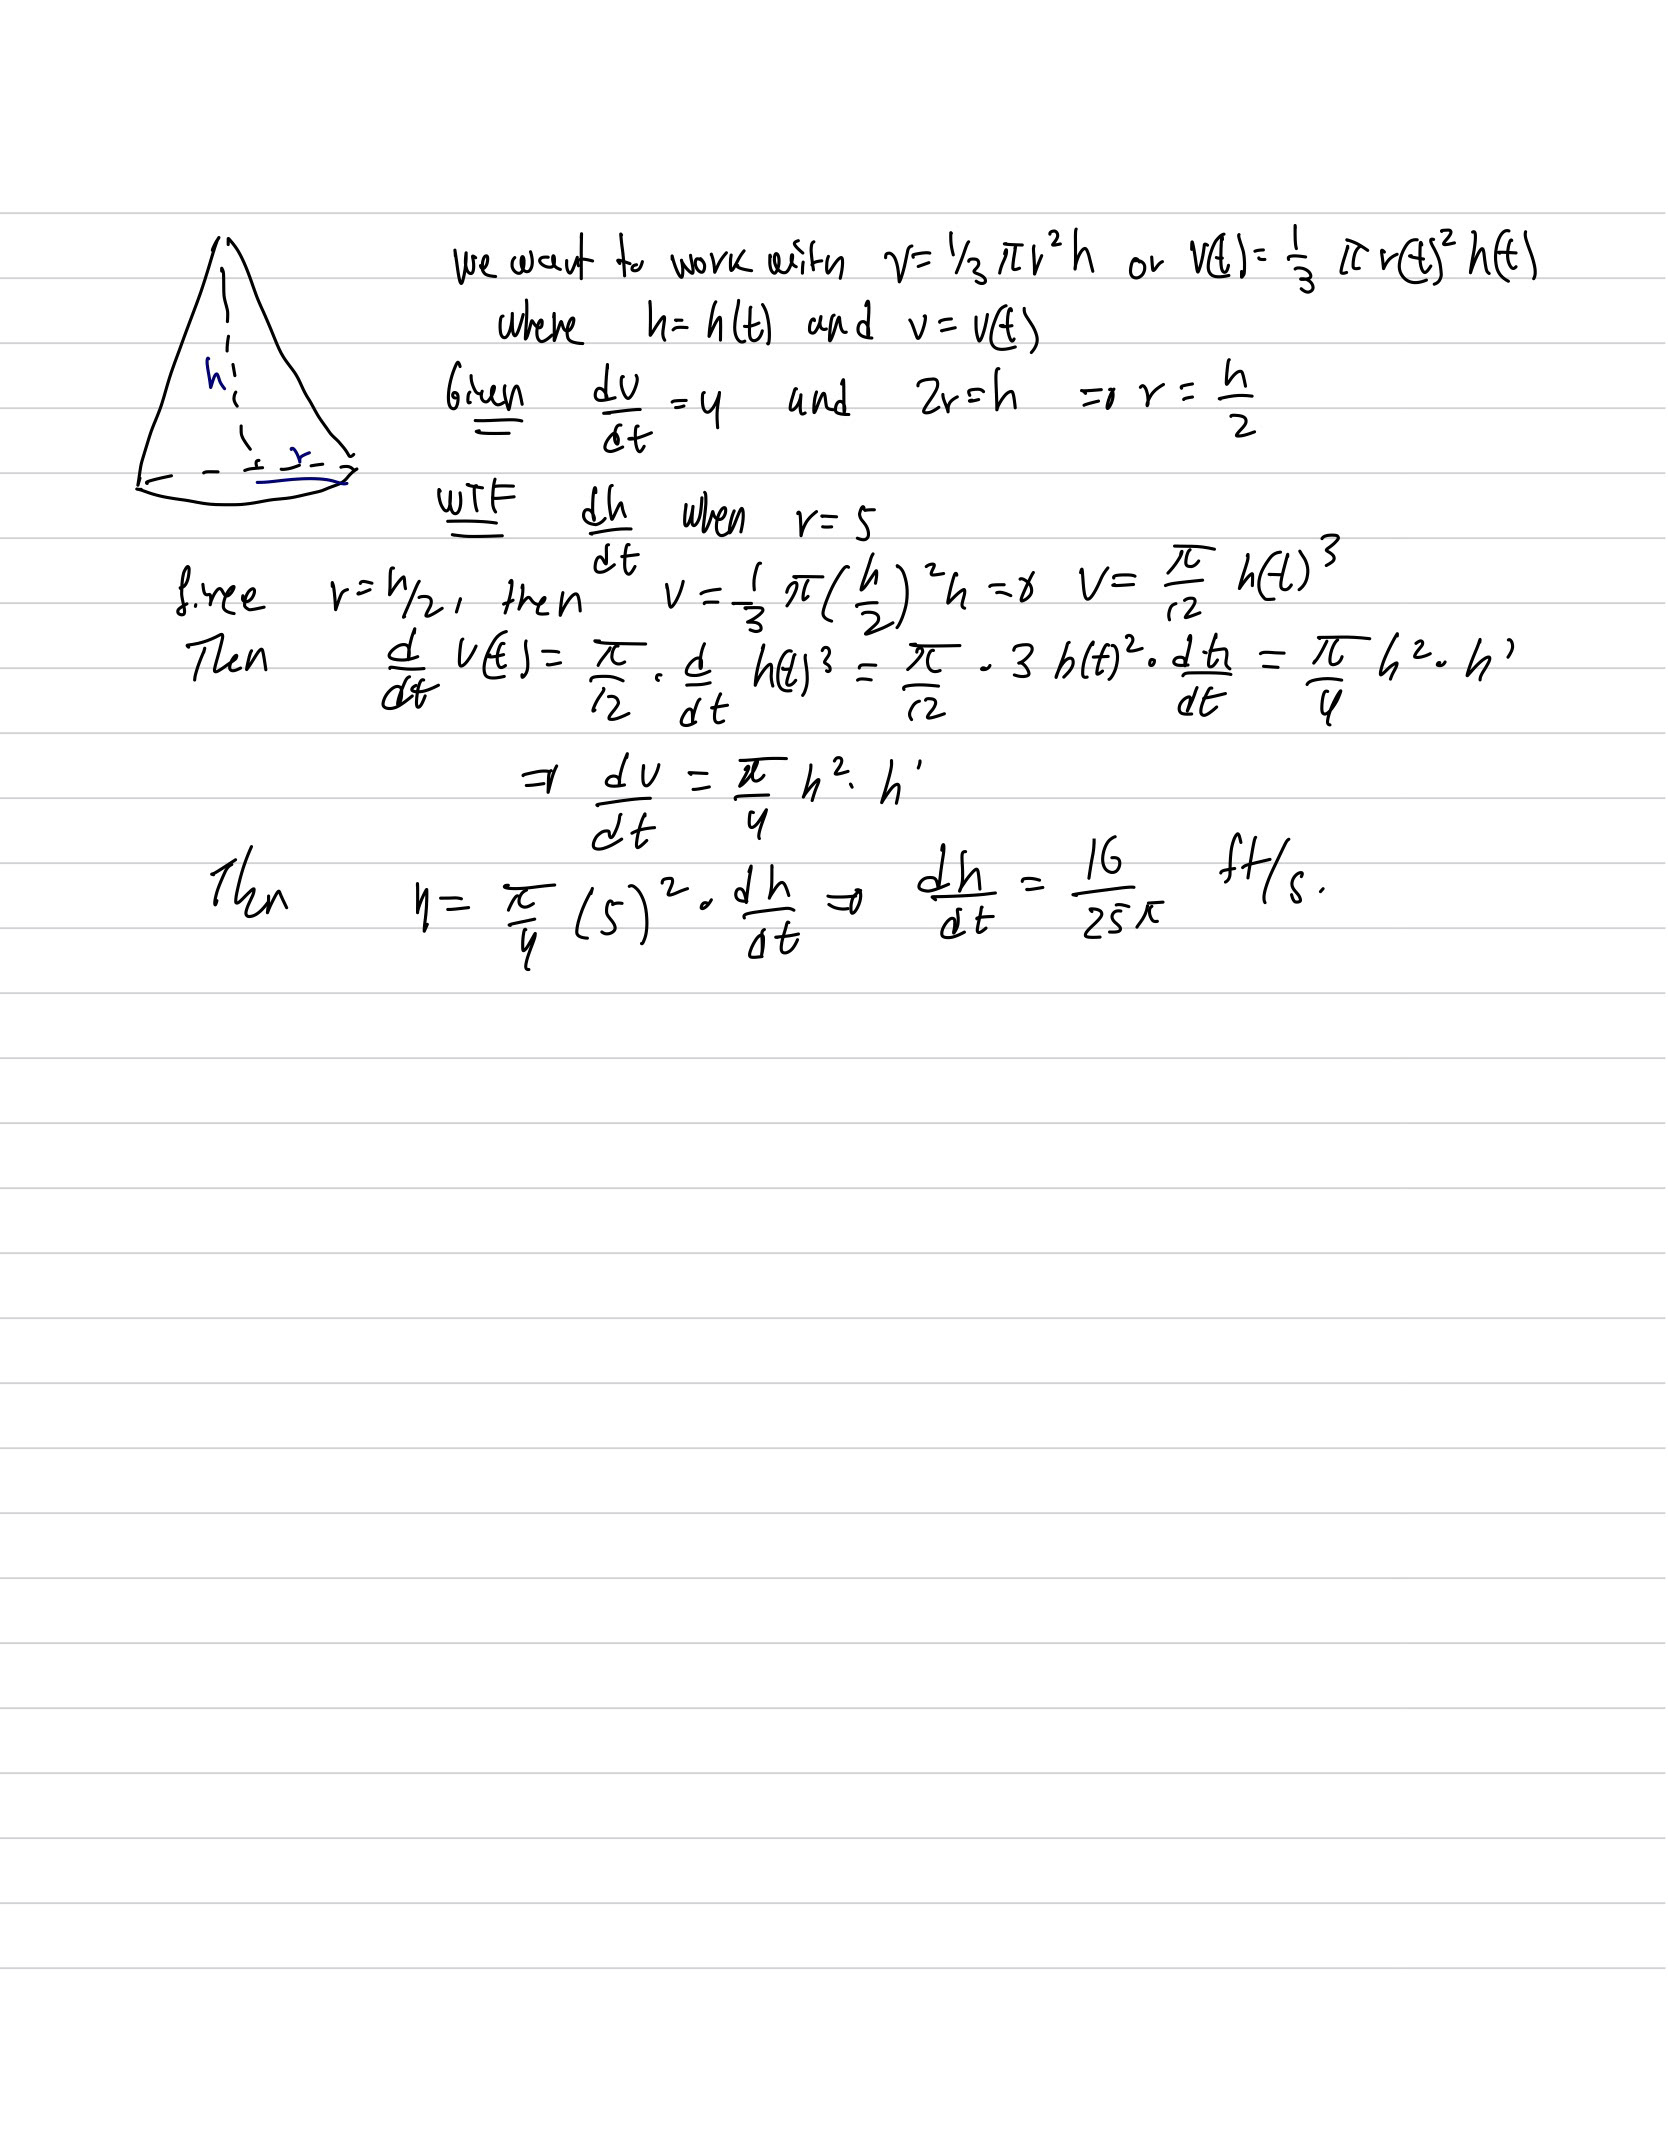 we want to work with V = 1/3 πr² h or V(t) = 1/3 π r(t)² h(t)
where h = h(t) and v = v(t)
h
Given dv/dt = 4 and 2r = h ⇒ r = h/2
r
WTF dh/dt when r = 5
Since r = h/2, then v = 1/3 π (h/2)² h ⇒ V = π/12 h(t)³
Then d/dt v(t) = π/12 · d/dt h(t)³ = π/12 · 3 h(t)² · dh/dt = π/4 h² · h'
⇒ dv/dt = π/4 h² · h'
Then 4 = π/4 (5)² · dh/dt ⇒ dh/dt = 16/25π ft/s.